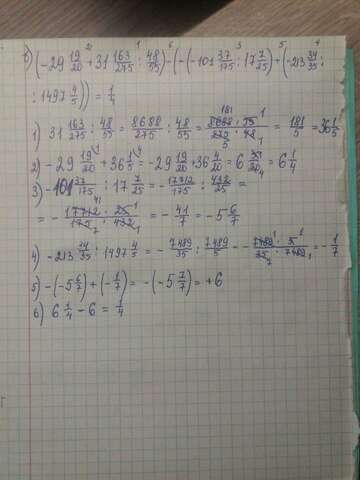 б) (-29 19/20 + 31 163/275 : 48/55) - (-(-101 37/175 : 17 7/25) + (-213 34/35 :
: 1497 4/5)) = 1/4
1) 31 163/275 : 48/55 = 8688/275 : 48/55 = 8688 · 55 / 275 · 48 = 181/5 = 36 1/5
2) -29 19/20 + 36 1/5 = -29 19/20 + 36 4/20 = 6 5/20 = 6 1/4
3) -101 37/175 : 17 7/25 = -17712/175 : 432/25 =
= - 17712 · 25 / 175 · 432 = - 41/7 = -5 6/7
4) -213 34/35 : 1497 4/5 = - 7489/35 : 7489/5 = - 7489 · 5 / 35 · 7489 = - 1/7
5) -(-5 6/7) + (-1/7) = -(-5 7/7) = +6
6) 6 1/4 - 6 = 1/4